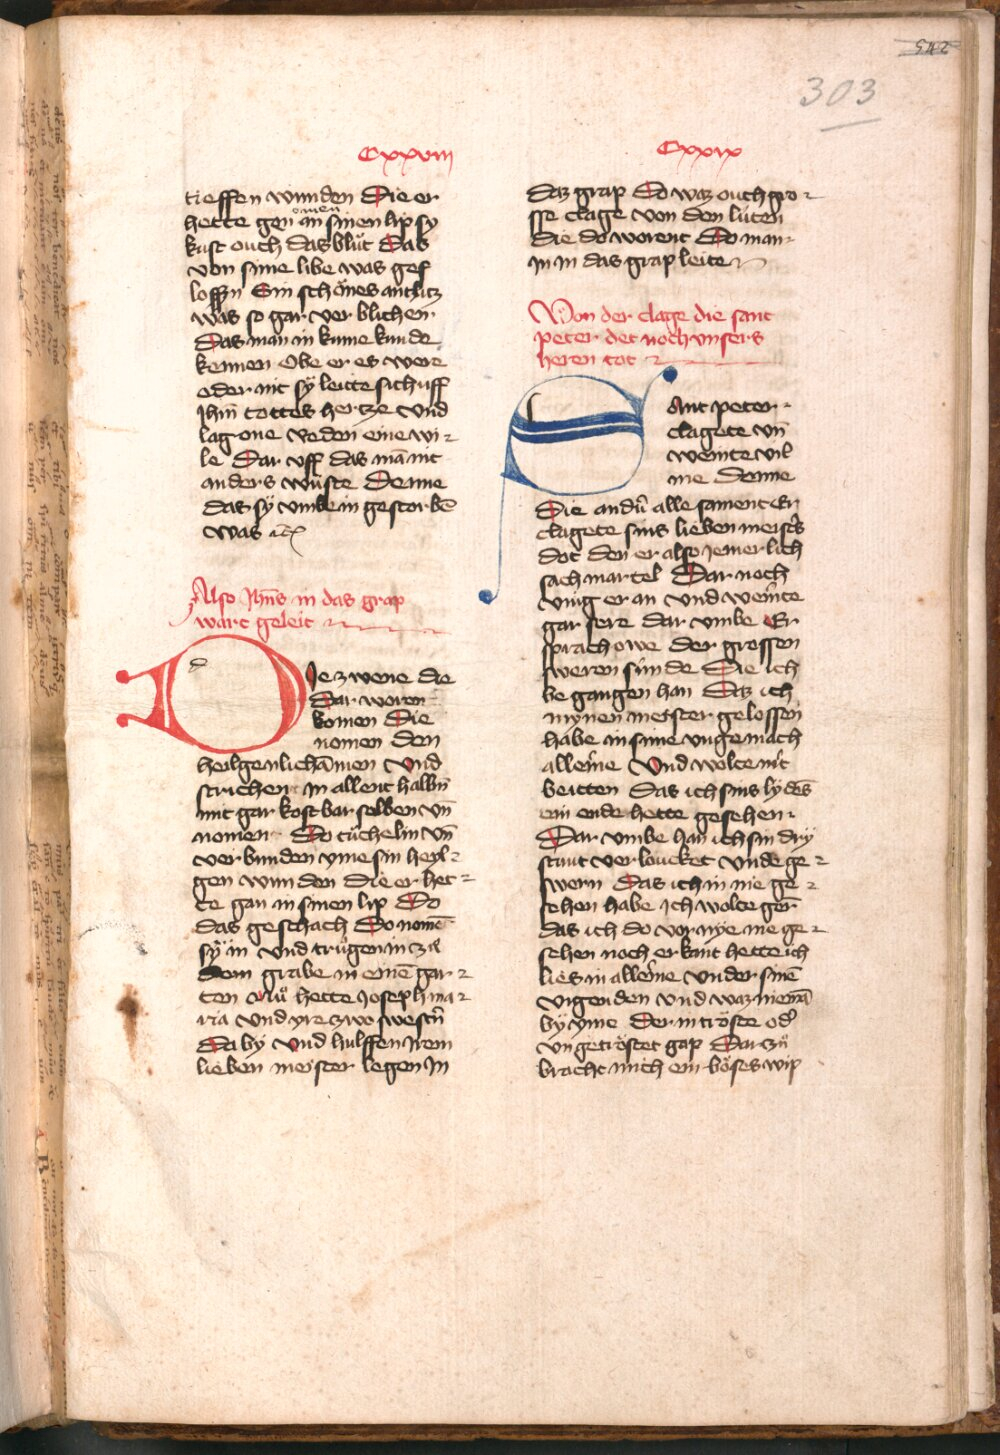 542
303
Cxxviii
tieffen wunden Die er
hette gen an sinen lip sy
kust ouch das blůt Das
von sime libe was gef
lossen Sin schönes antlitz
was so gar ver blichen
Das man in kume kunde
kennen Obe er es were
oder nit sÿ leitte sich uff
Jhm̄ tottes hertze Vnd
lag one reden eine wi
le Dar vff das mā nit
anders wůste Denne
das sÿ vmbe in gestorbē
was
Also Jhūs in das grap
wart geleit
D
Je zwene die
Dar woren
komen Die
nomen den
heilgen lichāmen Vnd
strichen in allent halbn̄
mit gar kostbar selben vn̄
nomen Do tůchelin vn̄
verbunden yme sin heyl
gen wunden Die er het
te gan in sinen lip Do
das geschach Do nomē
sÿ in Vnd trůgen in zů
dem grabe in einē gar
ten Nů hette Joseph ma
ria Vnd yre zwo swestn̄
Da by Vnd hulffen Jrem
lieben meister legen Jn
Cxxix
Daz grap Do waz ouch gro
sse clage von den lüten
die do worent Do man
Jn in das grap leite
Von der clage die sant
peter det noch vnsers
heren tot
S
Ant peter
clagete vn̄
weinte vil
me denne
Die andn̄ alle sament Er
clagete sins lieben meist's
dot den er also Jemerlich
sach martel Dar noch
ving er an Vnd weinte
gar sere Dar vmbe Er
sprach owe der grossen
sweren sünde Die ich
be gangen han Daz ich
mynen meister gelossen
habe in sime vngemach
alleine Vnd wolte nit
beitten Das ich sins lydēs
ein ende hette gesehen
Dar vmbe han ich sin dry
stunt verloucket vnde ge
swern Das ich in nie ge
sehen habe Jch wolte gern
das ich do vor nye me ge
sehen noch erkant hette ich
lies in alleine vnder sinē
vigenden vnd waz niemā
by yme Der in tröste od'
vngetröstet gap Dar zů
bracht mich ein böses wip